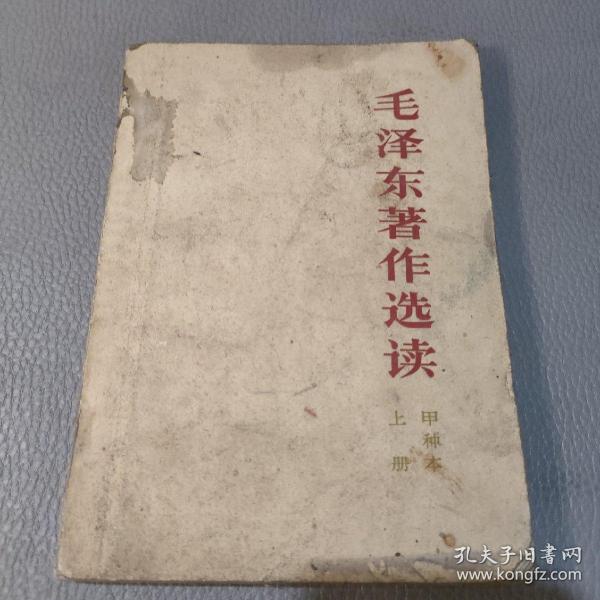 毛泽东著作选读
甲种本
上册
孔夫子旧书网
www.kongfz.com